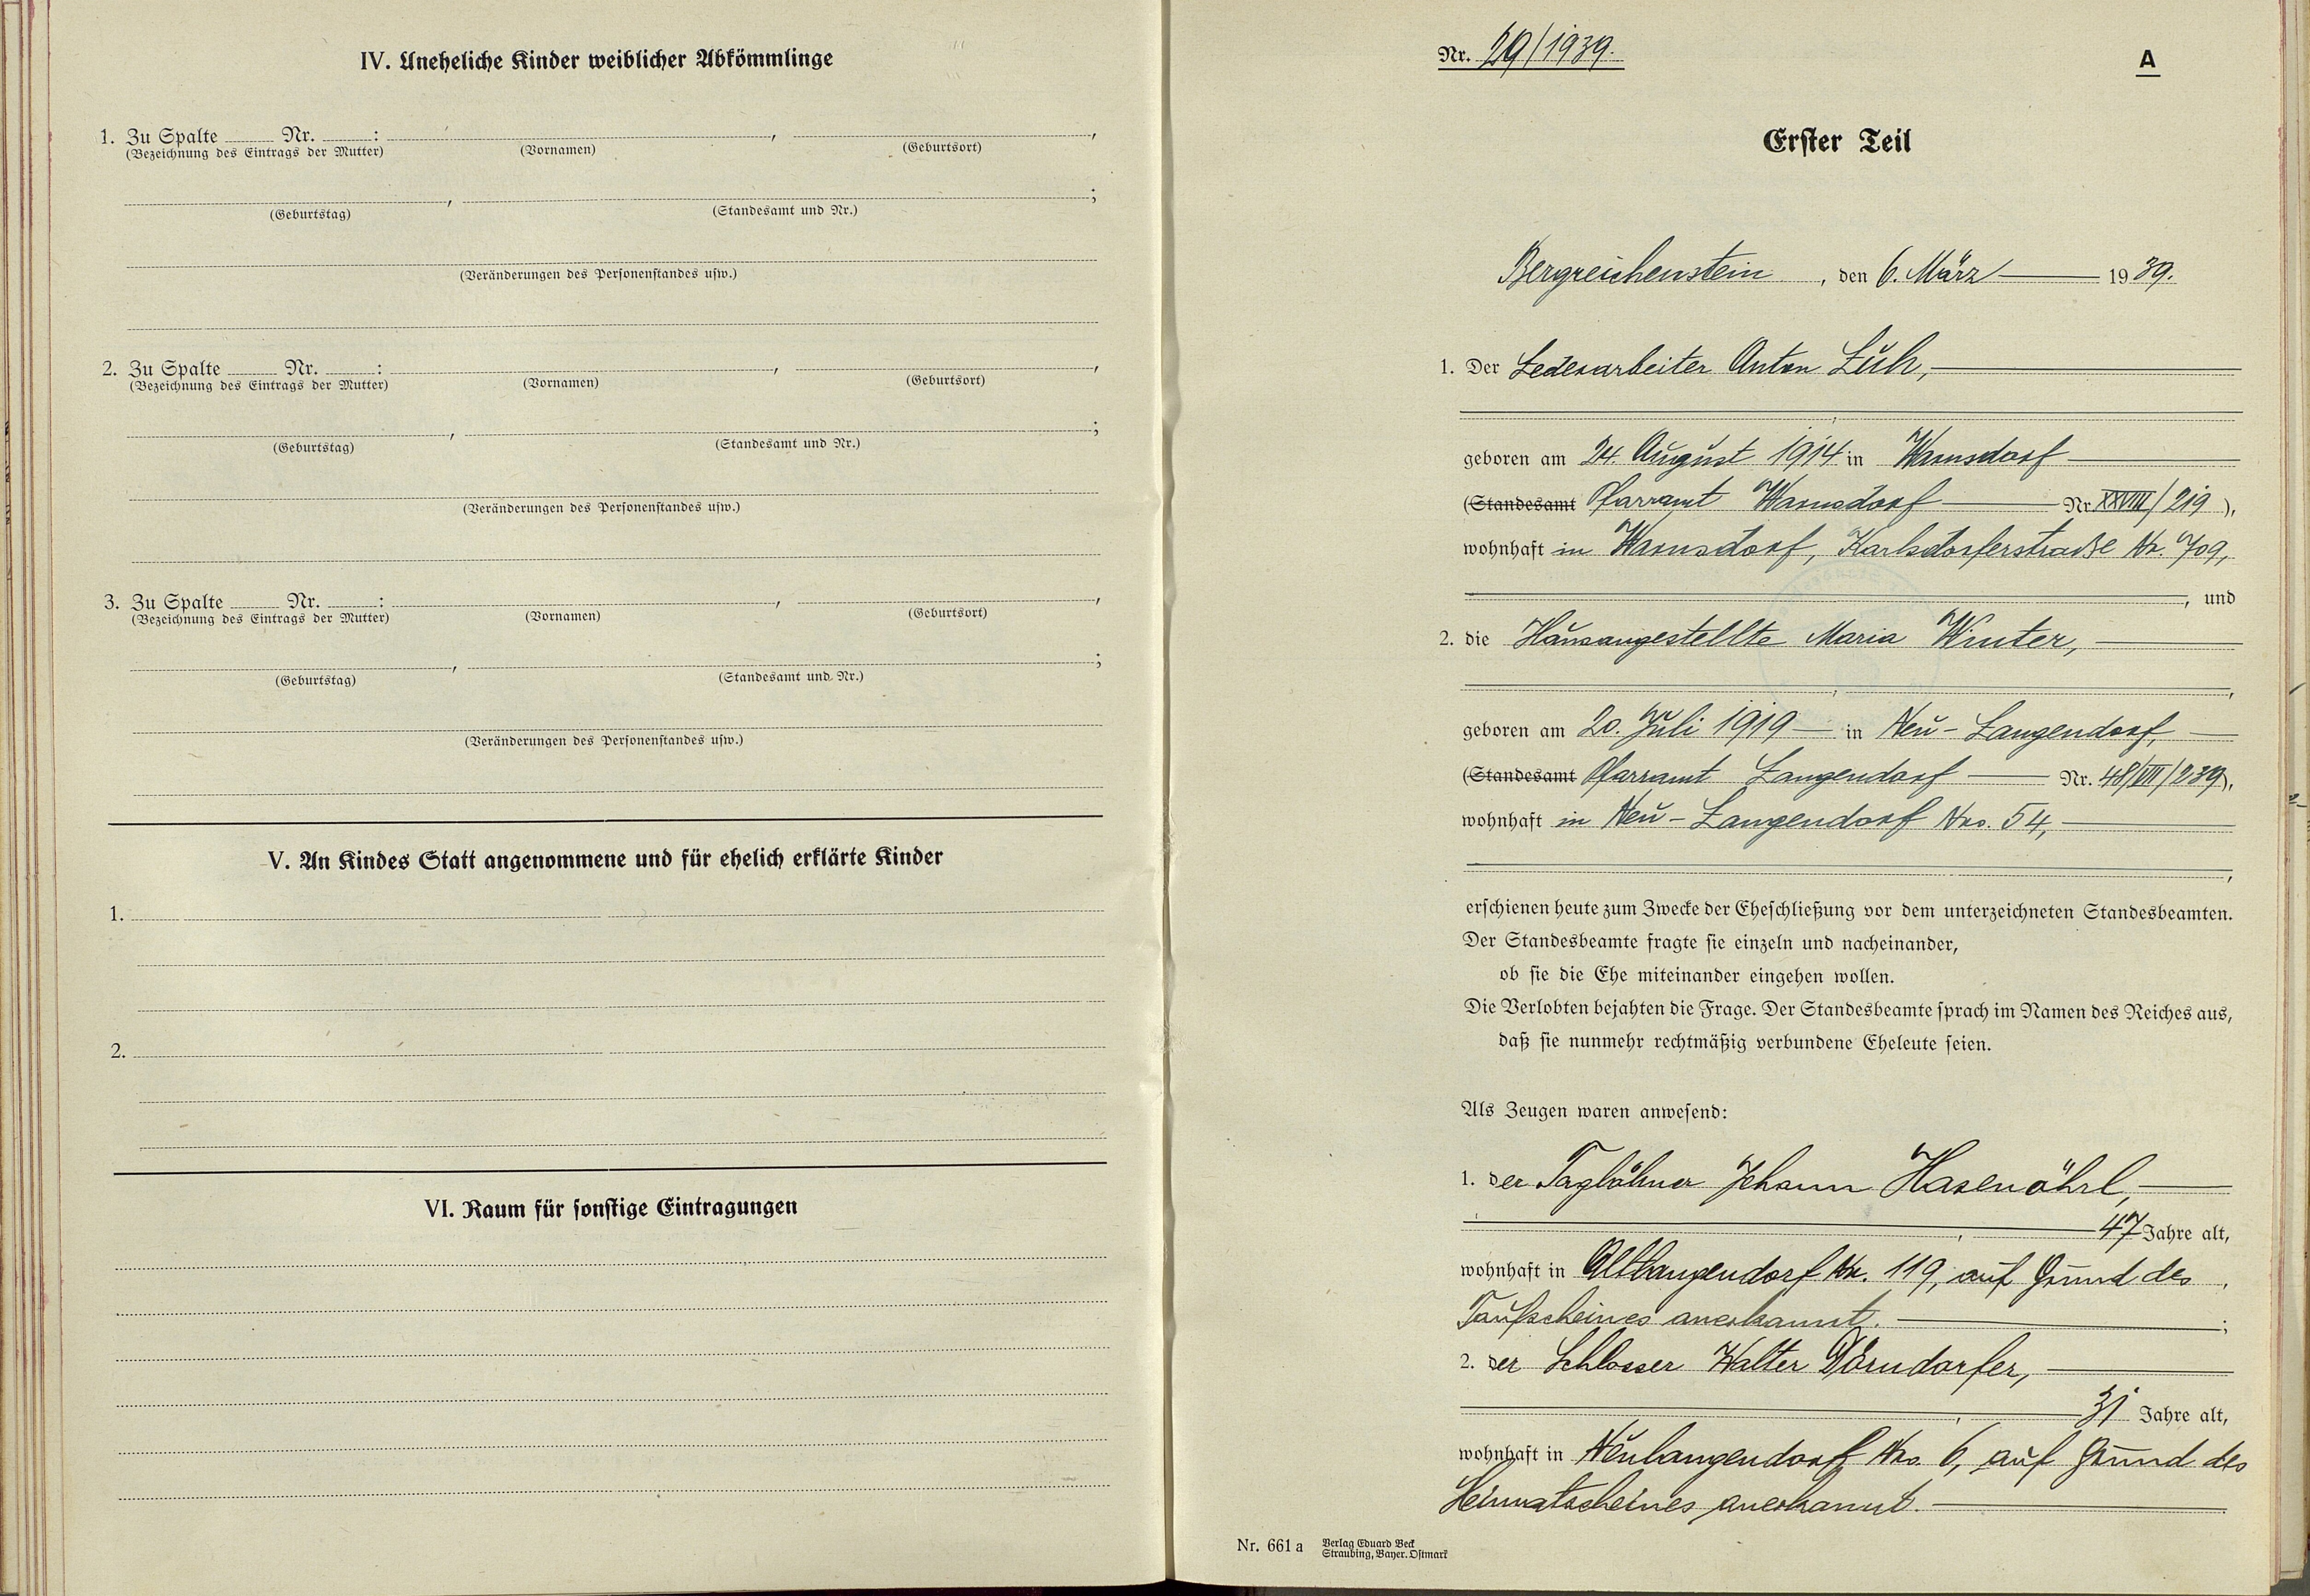 IV. Uneheliche Kinder weiblicher Abkömmlinge
1. Zu Spalte ........ Nr. ........ : ........ , ........ ,
(Bezeichnung des Eintrags der Mutter) (Vornamen) (Geburtsort)
........ , ........ ;
(Geburtstag) (Standesamt und Nr.)
(Veränderungen des Personenstandes usw.)
2. Zu Spalte ........ Nr. ........ : ........ , ........ ,
(Bezeichnung des Eintrags der Mutter) (Vornamen) (Geburtsort)
........ , ........ ;
(Geburtstag) (Standesamt und Nr.)
(Veränderungen des Personenstandes usw.)
3. Zu Spalte ........ Nr. ........ : ........ , ........ ,
(Bezeichnung des Eintrags der Mutter) (Vornamen) (Geburtsort)
........ , ........ ;
(Geburtstag) (Standesamt und Nr.)
(Veränderungen des Personenstandes usw.)
V. An Kindes Statt angenommene und für ehelich erklärte Kinder
1.
2.
VI. Raum für sonstige Eintragungen
Nr. 29/1939.
A
Erster Teil
Bergreichenstein, den 6. März 1939.
1. Der Lederarbeiter Anton Luh,
geboren am 24. August 1914 in Warnsdorf
(Standesamt Pfarramt Warnsdorf Nr. XXVIII/219),
wohnhaft in Warnsdorf, Karlsdorferstraße Nr. 709,
, und
2. die Hausangestellte Maria Winter,
geboren am 20. Juli 1919 in Neu-Langendorf,
(Standesamt Pfarramt Langendorf Nr. 48/VIII/239),
wohnhaft in Neu-Langendorf Nro. 54,
erschienen heute zum Zwecke der Eheschließung vor dem unterzeichneten Standesbeamten.
Der Standesbeamte fragte sie einzeln und nacheinander,
ob sie die Ehe miteinander eingehen wollen.
Die Verlobten bejahten die Frage. Der Standesbeamte sprach im Namen des Reiches aus,
daß sie nunmehr rechtmäßig verbundene Eheleute seien.
Als Zeugen waren anwesend:
1. der Taglöhner Johann Hasenöhrl,
47 Jahre alt,
wohnhaft in Altlangendorf Nr. 119, auf Grund des
Taufscheines anerkannt.
2. der Schlosser Walter Dörndorfer,
31 Jahre alt,
wohnhaft in Neulangendorf Nro. 6, auf Grund des
Heimatscheines anerkannt.
Nr. 661 a Verlag Eduard Beck
Straubing, Bayer. Ostmark